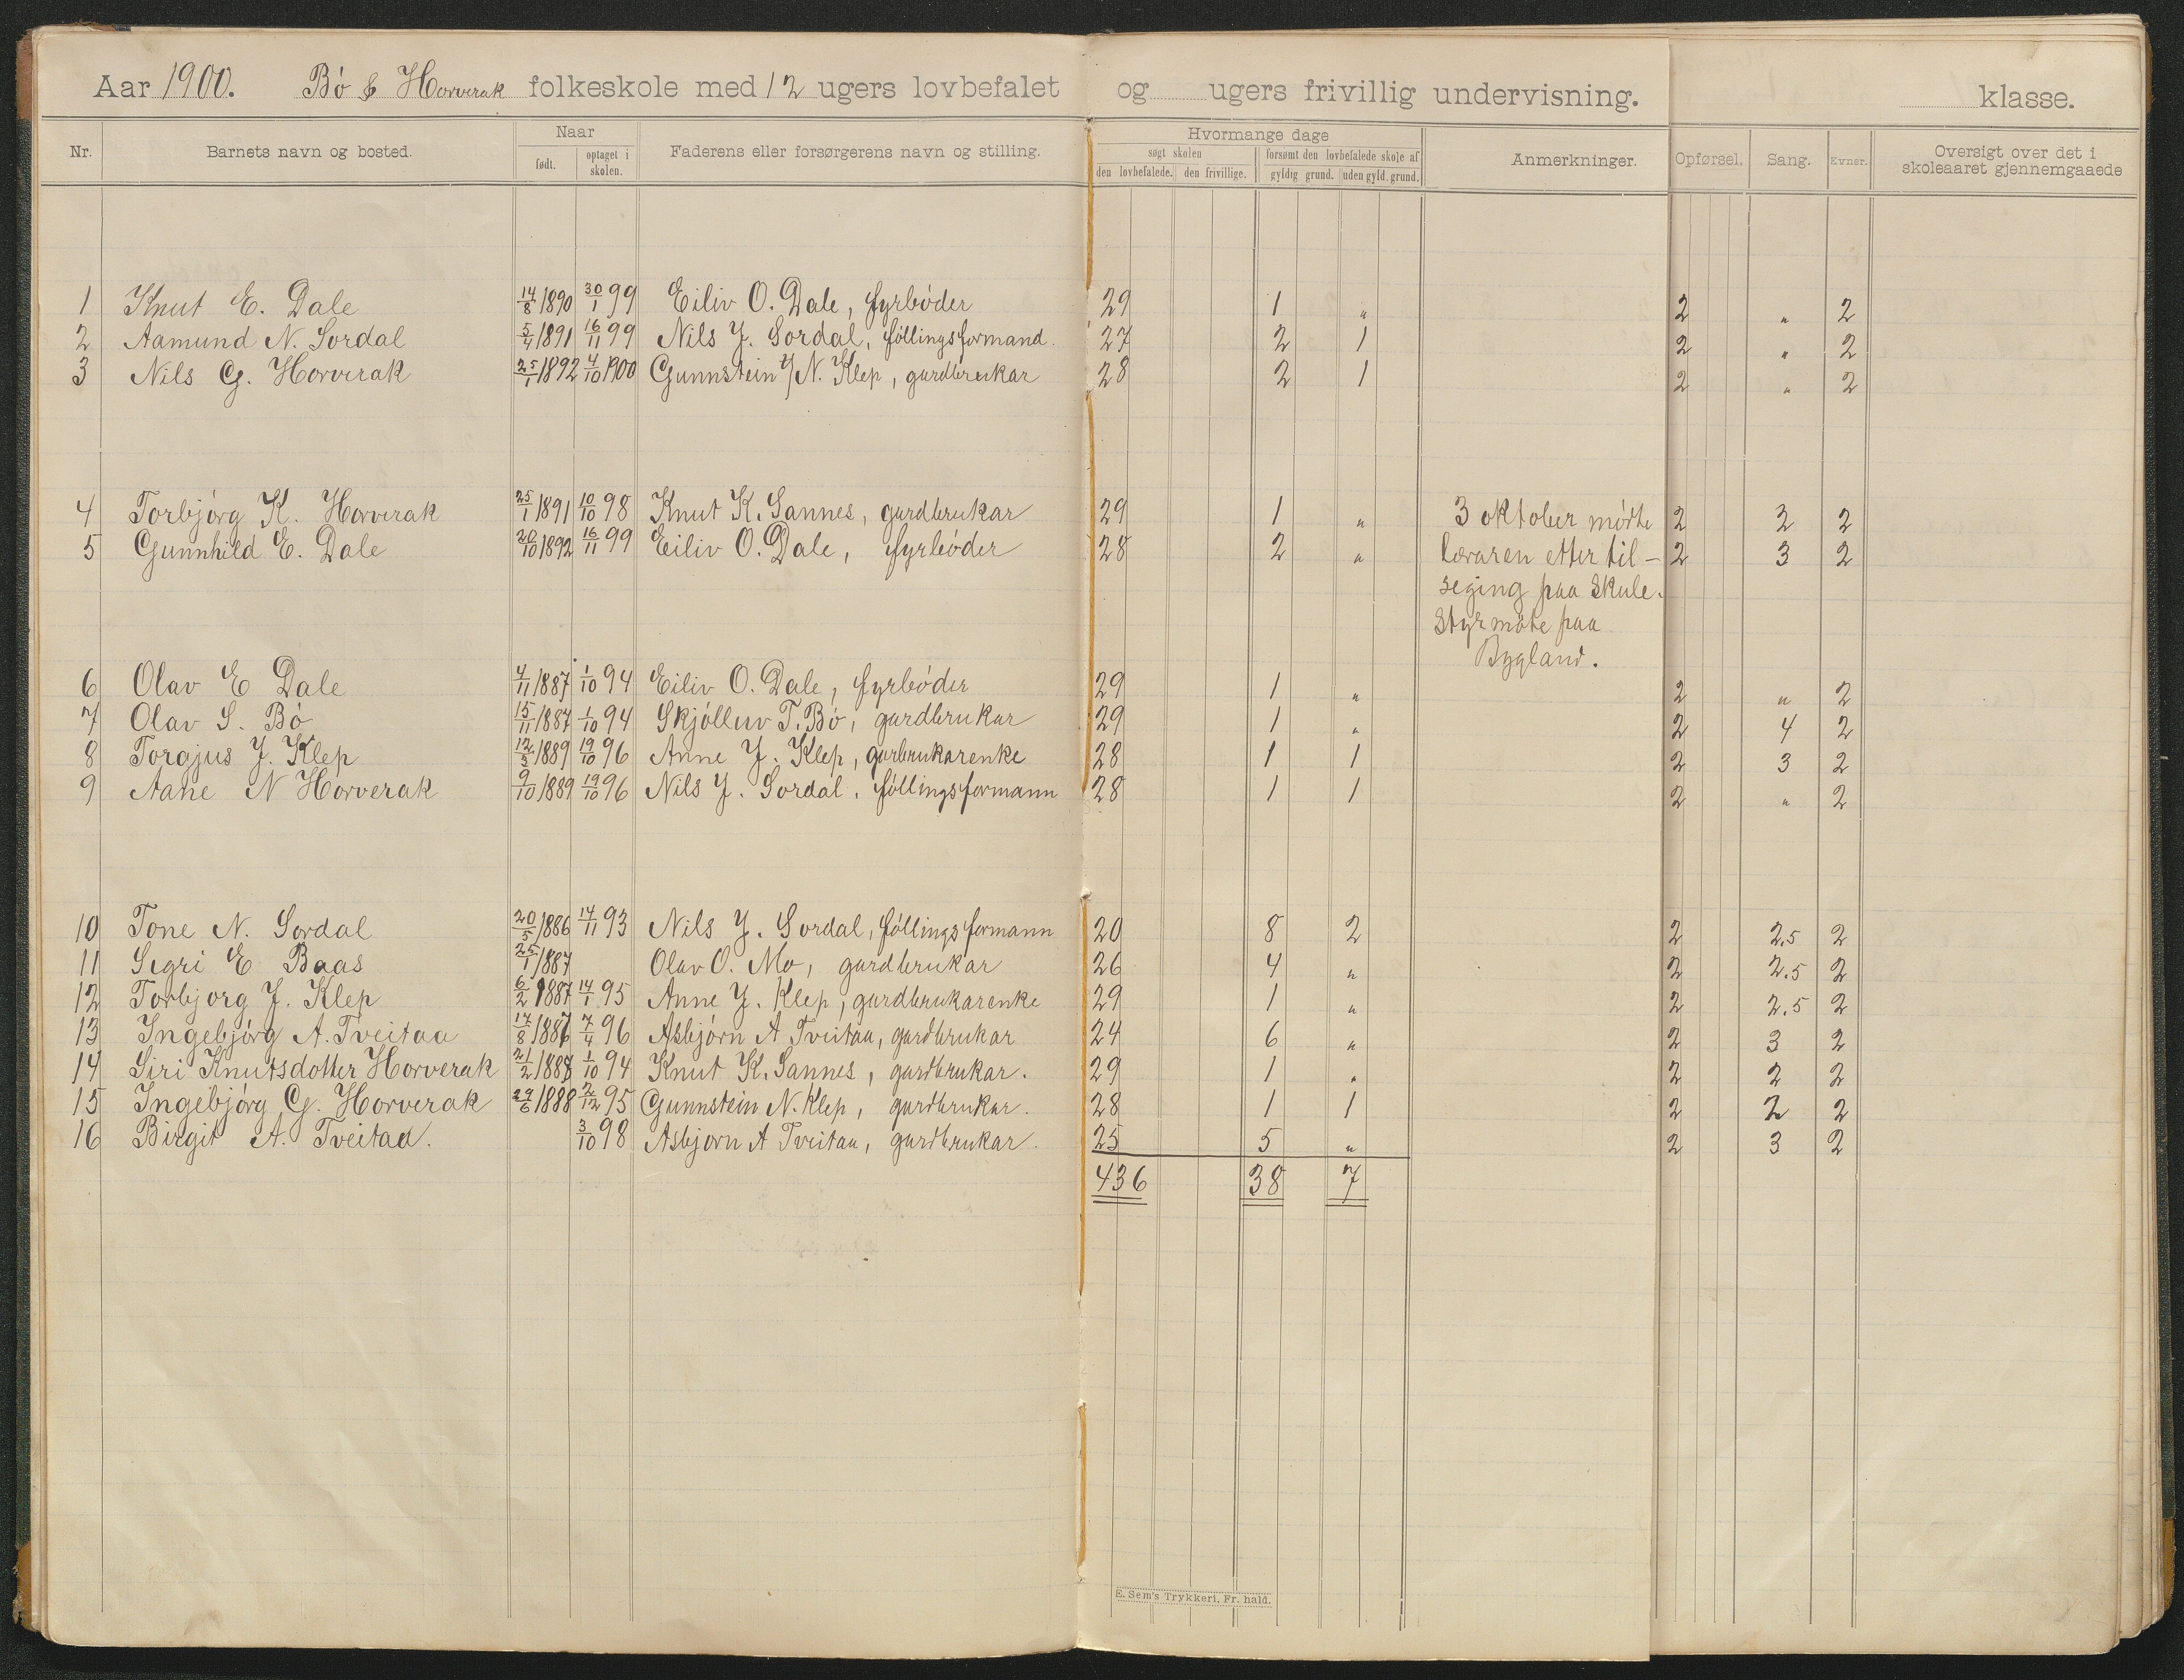 Aar 1900. Bö & Horverak folkeskole med 12 ugers lovbefalet og ugers frivillig undervisning. klasse.
Nr. Barnets navn og bosted. Naar født. optaget i skolen. Faderens eller forsørgerens navn og stilling. Hvormange dage søgt skolen den lovbefalede. den frivillige. forsømt den lovbefalede skole af gyldig grund. uden gyld. grund. Anmerkninger. Opførsel. Sang. Evner. Oversigt over det i skoleaaret gjennemgaaede
1 Knut E. Dale 14/8 1890 30/1 99 Eiliv O. Dale, fyrböder 29 1 " 2 " 2
2 Aamund N. Sordal 5/4 1891 16/11 99 Nils J. Sordal, föllingsformand. 27 2 1 2 " 2
3 Nils G. Horverak 25/1 1892 4/10 1900 Gunnstein N. Klep, gardbrukar 28 2 1 2 " 2
4 Torbjörg K. Horverak 25/1 1891 10/10 98 Knut K. Sannes, gardbrukar 29 1 " 3 oktober mödte 2 2 2
5 Gunnhild E. Dale 20/10 1892 16/11 99 Eiliv O. Dale, fyrböder 28 2 " læraren etter til- 2 3 2
seging paa Skule.
Styrmöte paa
Bygland.
6 Olav E Dale 4/11 1887 1/10 94 Eiliv O. Dale, fyrböder 29 1 " 2 " 2
7 Olav S. Bö 15/11 1887 1/10 94 Skjölluv T. Bö, gardbrukar 29 1 " 2 4 2
8 Torgjus J. Klep 12/3 1889 19/10 96 Anne J. Klep, garbrukarenke 28 1 1 2 3 2
9 Aane N Horverak 9/10 1889 19/10 96 Nils J. Sordal, föllingsformann 28 1 1 2 " 2
10 Tone N. Sordal 20/5 1886 14/11 93 Nils J. Sordal, föllingsformann 20 8 2 2 2.5 2
11 Sigri E Baas 25/1 1887 Olav O. Mo, gardbrukar 26 4 " 2 2.5 2
12 Torbjorg J. Klep 6/2 1887 14/1 95 Anne J. Klep, gardbrukarenke 29 1 " 2 2.5 2
13 Ingebjörg A. Tveitaa 17/8 1886 7/4 96 Asbjörn A Tveitaa, gardbrukar 24 6 " 2 3 2
14 Siri Knutsdotter Horverak 21/2 1888 1/10 94 Knut K. Sannes, gardbrukar. 29 1 " 2 2 2
15 Ingebjörg G. Horverak 29/6 1888 2/12 95 Gunnstein N. Klep, gardbrukar. 28 1 1 2 2 2
16 Birgit A. Tveitaa. 3/10 98 Asbjorn A Tveitaa, gardbrukar. 25 5 " 2 3 2
436 38 7
E. Sem's Trykkeri, Fr. hald.